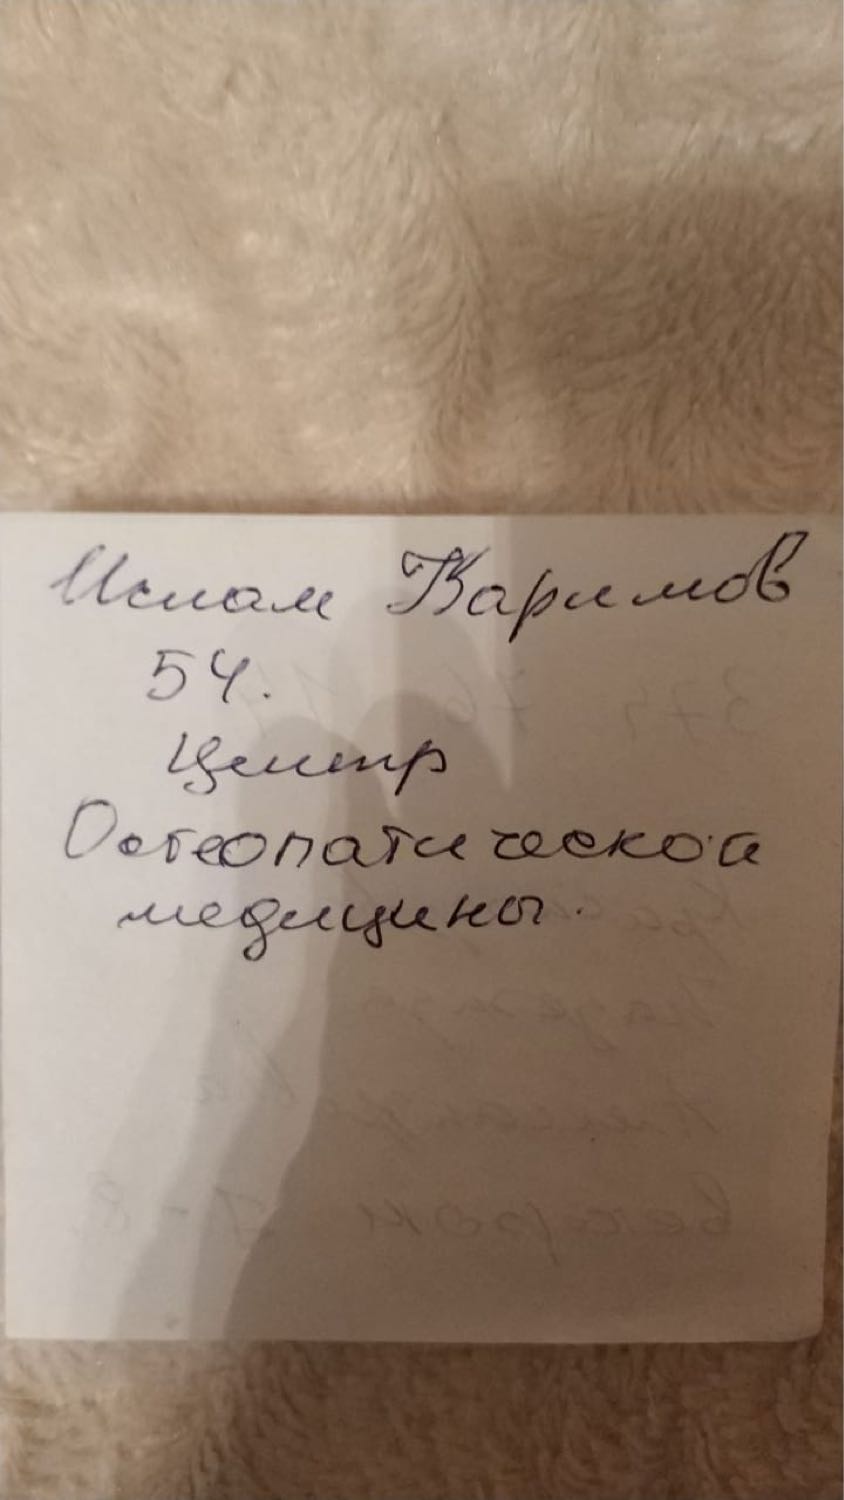 Ислам Каримов
54.
Центр
Остеопатической
медицины.